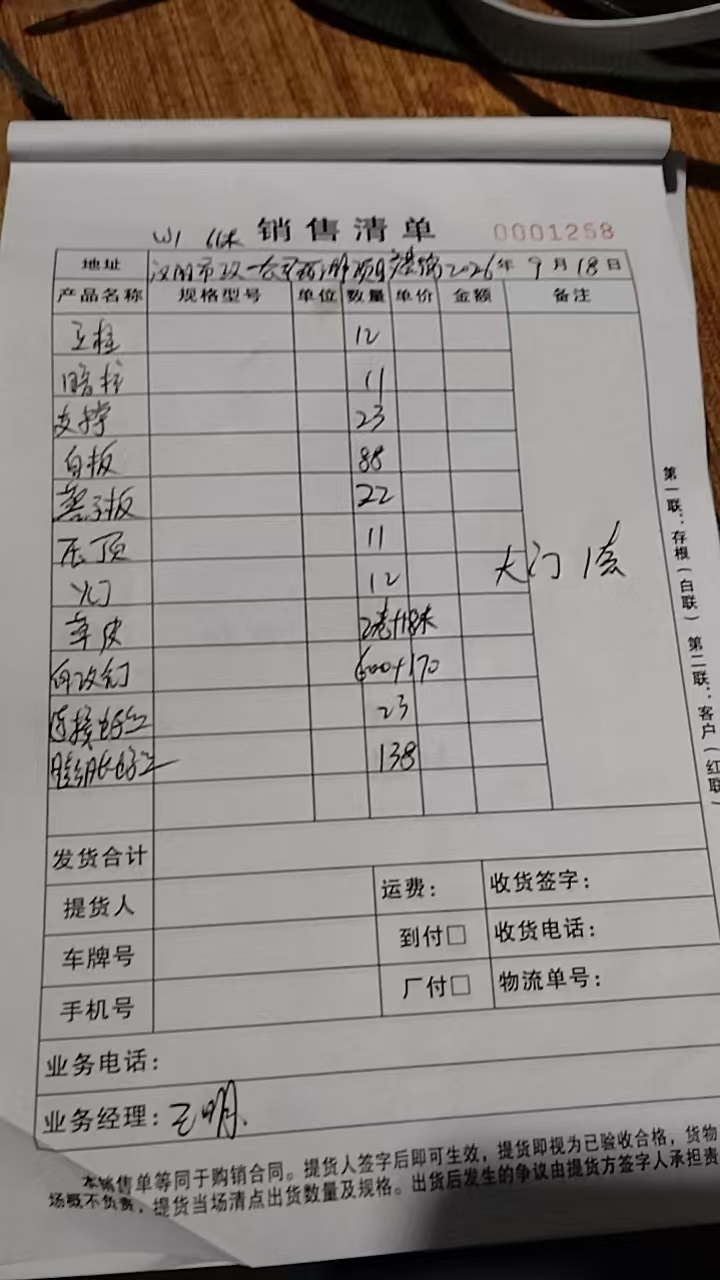 W1 66米 销售清单 0001258
地址 汉阴市政 项目 2026年9月18日
产品名称 规格型号 单位 数量 单价 金额 备注
立柱 12
暗柱 11
支撑 23
白板 88
22
压顶 11
12
草皮 2卷+18米
自攻钉 600+170
连接螺丝 23
膨胀螺丝 138
大门 1套
发货合计
提货人 运费: 收货签字:
车牌号 到付□ 收货电话:
手机号 厂付□ 物流单号:
业务电话:
业务经理: 王明.
本销售单等同于购销合同。提货人签字后即可生效，提货即视为已验收合格，货物
场概不负责，提货当场清点出货数量及规格。出货后发生的争议由提货方签字人承担责
第一联:存根(白联) 第二联:客户(红联)